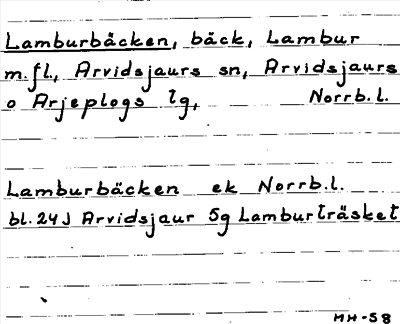 Lamburbäcken, bäck, Lambur
m.fl., Arvidsjaurs sn, Arvidsjaurs
o Arjeplogs lg, Norrb.l.
Lamburbäcken ek Norrb.l.
bl. 24J Arvidsjaur 5g Lamburträsket
MH-58